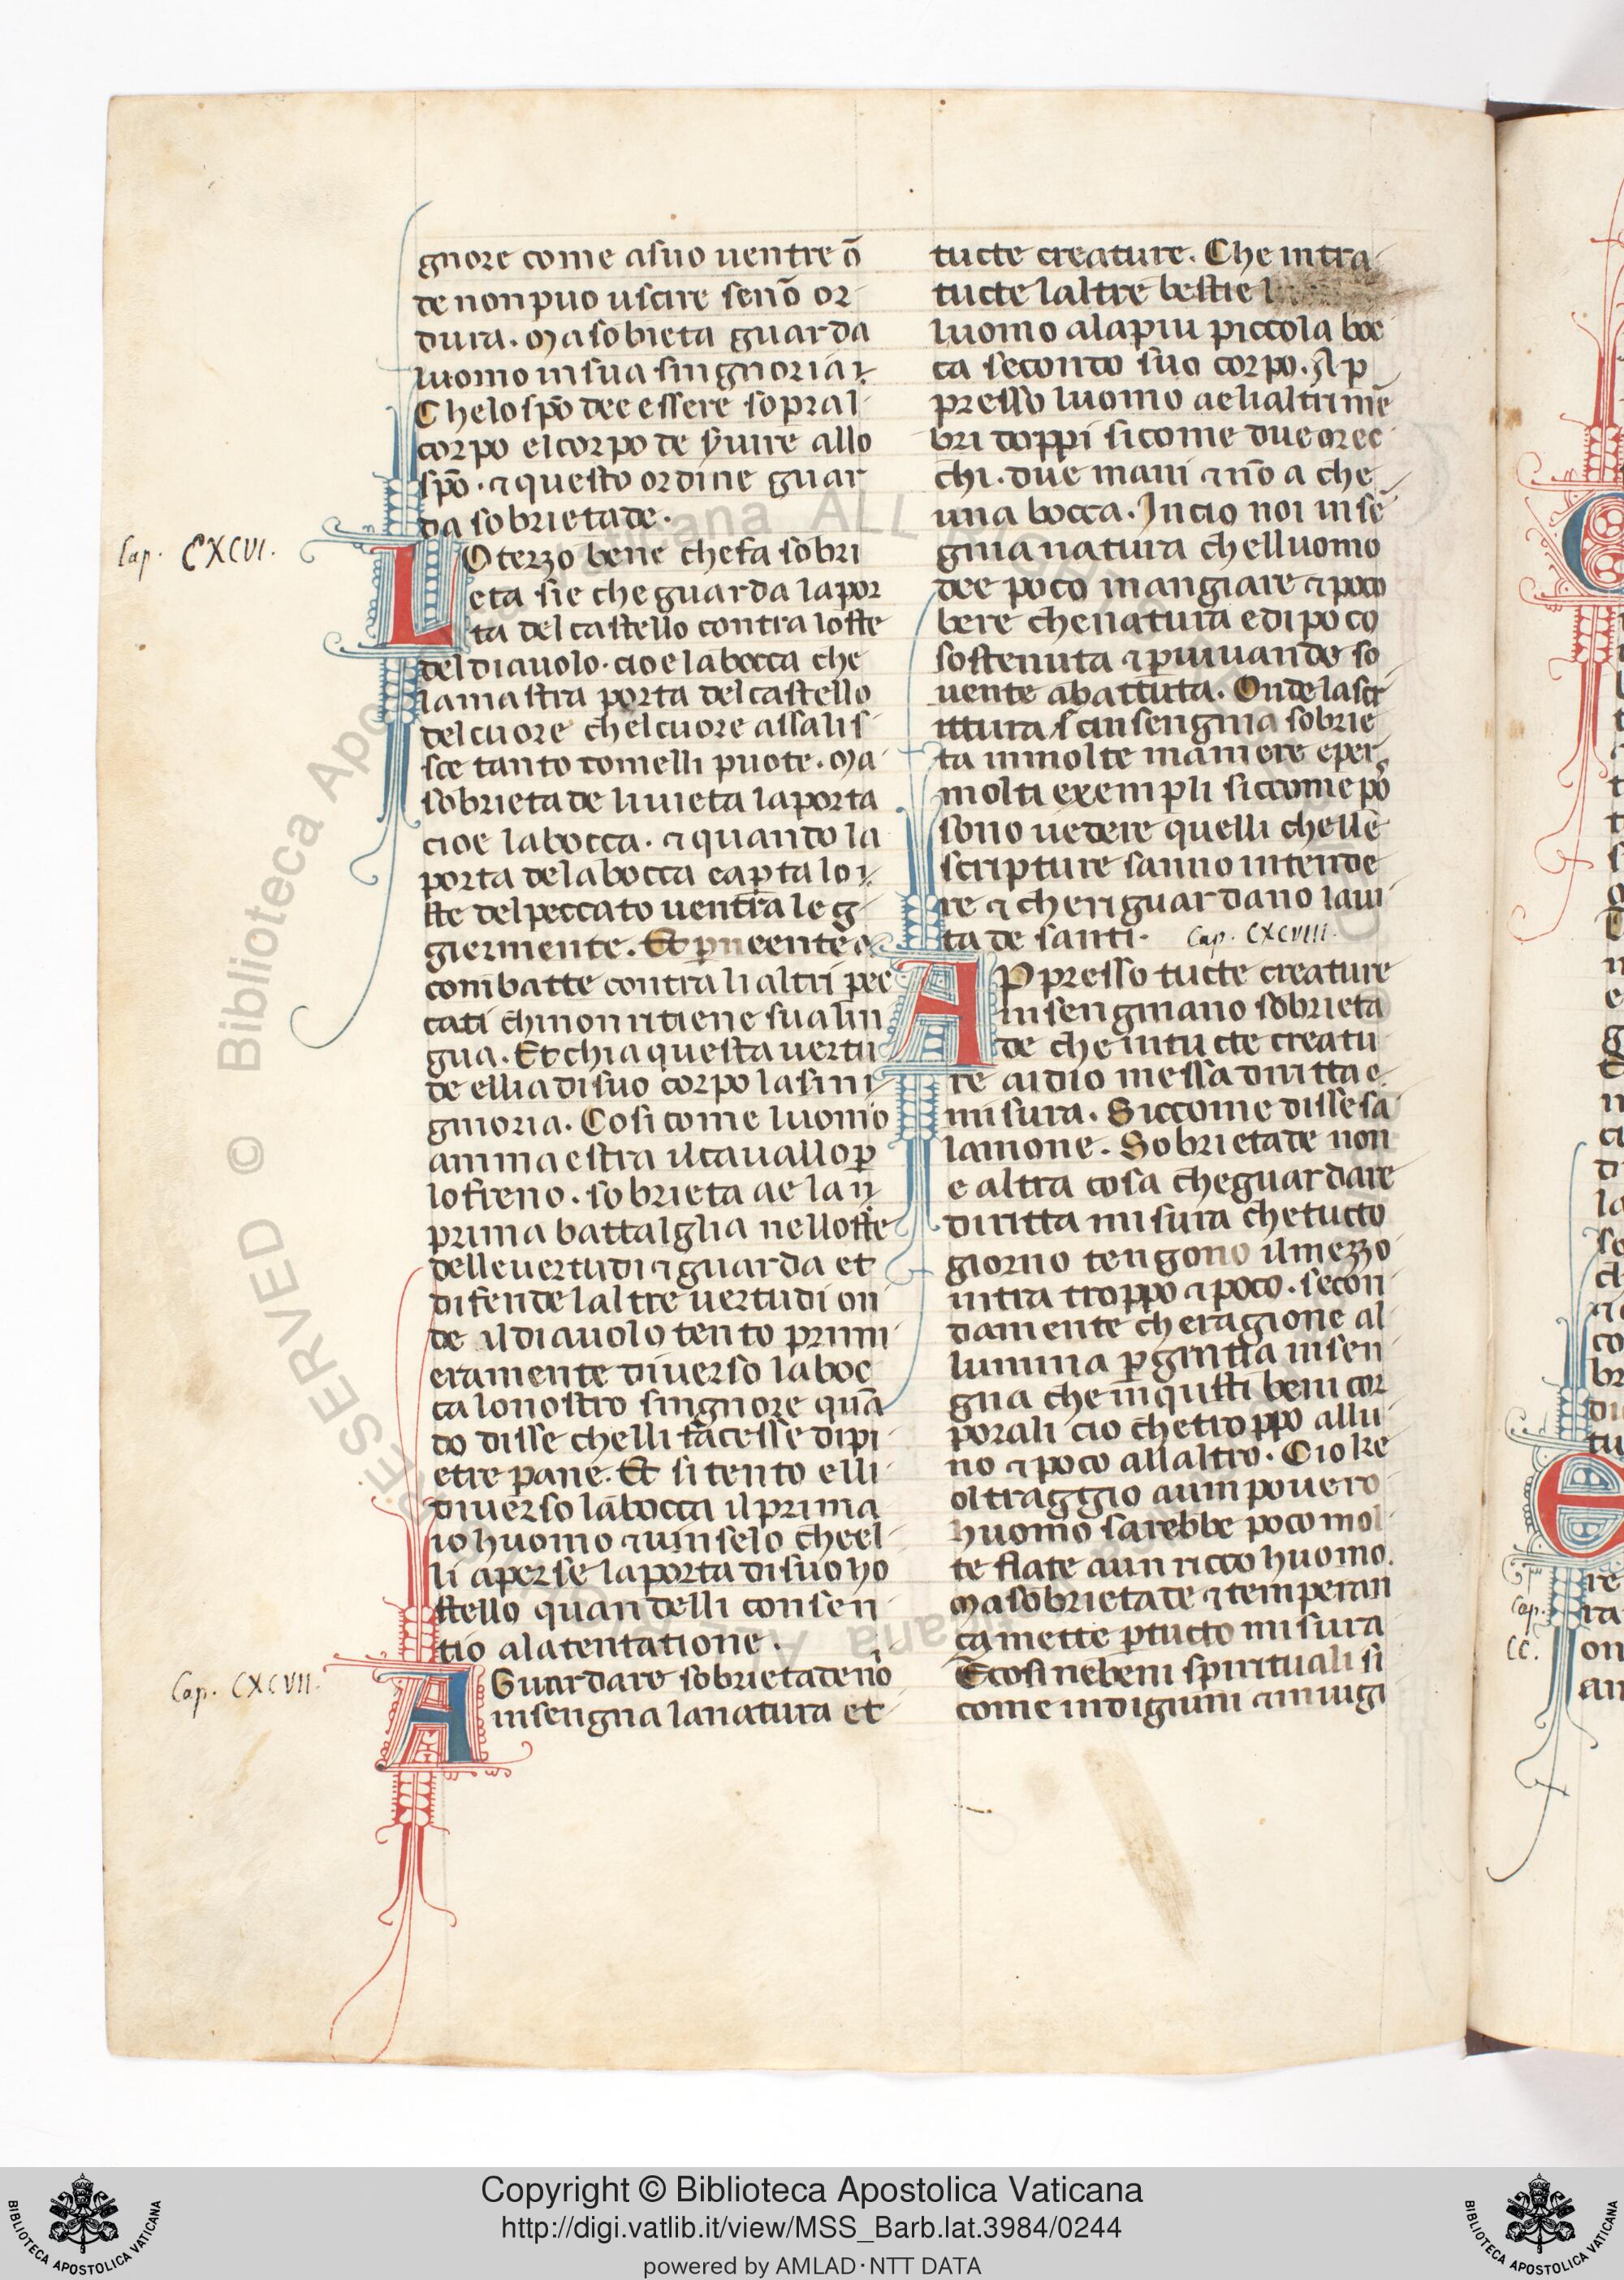 gnore come asuo uentre ō
de non puo uscire senō or
dura. Ma sobieta guarda
luomo in sua singnoria.
Che lo spō dee essere sopral
corpo el corpo de s̄uire allo
spō. ⁊ questo ordine guar
da sobrietade.
Cap. CXCVI.
LO terzo bene che fa sobri
eta sie che guarda la por
ta del castello contra loste
del diauolo. cio e la bocca che
la mastra porta del castello
del cuore chel cuore assalis
sce tanto comelli puote. Ma
sobrieta de li uieta la porta
cioe la bocca. ⁊ quando la
porta dela bocca e apta lo
ste del peccato uentra leg
giermente. Et
combatte contra li altri pec
cati chi non ritiene sua lin
gua. Et chi a questa uertu
de elli a di suo corpo la sin
gnoria. Cosi come luomo
ammaestra il cauallo ꝑ
lo freno. sobrieta ae la
prima battalglia nelloste
delle uertudi ⁊ guarda et
difende laltre uertudi on
de il diauolo tento primi
eramente diuerso la boc
ca lo nostro singnore quā
do disse chelli facesse di pi
etre pane. Et si tento elli
diuerso la bocca il prima
io huomo ⁊ uinselo che el
li aperse la porta di suo ho
stello quandelli consen
tio ala tentatione.
Cap. CXCVII.
A Guardare sobrietade nō
insengna la natura et
tucte creature. Che intra
tucte laltre bestie l
luomo a la piu piccola boc
ca secondo suo corpo. Ap
presso luomo ae li altri mē
bri doppi si come due orec
chi. due mani ⁊ nō a che
una bocca. In cio noi insē
gnia natura chelluomo
dee poco mangiare ⁊ poco
bere che natura e di poco
sostenuta ⁊ ꝑ uiuande so
uente abattuta. Onde la scr
ittura sci insengnia sobrie
ta in molte maniere e per
molti exempli siccome pō
sono uedere quelli chelle
scripture sanno intende
re ⁊ che riguardano la ui
ta de santi.
Cap. CXCVIII.
APpresso tucte creature
insengniano sobrieta
de che in tucte creatu
re a idio messa diritta
misura. Siccome disse sa
lamone. Sobrietade non
e altra cosa che guardare
diritta misura che tucto
giorno tengono il mezzo
intra troppo ⁊ poco. secon
damente che ragione al
lumina ꝑ gratia insen
gna che in questi beni cor
porali cio che troppo allu
no ⁊ poco all altro. Cio ke
oltraggio a un pouero
huomo sarebbe poco mol
te fiate a un ricco huomo.
Ma sobrietade ⁊ temperan
ça mette ꝑ tucto misura
E cosi ne beni spirituali si
come in digiuni ⁊ in uigi
Cap.
CC.
Copyright © Biblioteca Apostolica Vaticana
http://digi.vatlib.it/view/MSS_Barb.lat.3984/0244
powered by AMLAD·NTT DATA
BIBLIOTECA APOSTOLICA VATICANA
BIBLIOTECA APOSTOLICA VATICANA